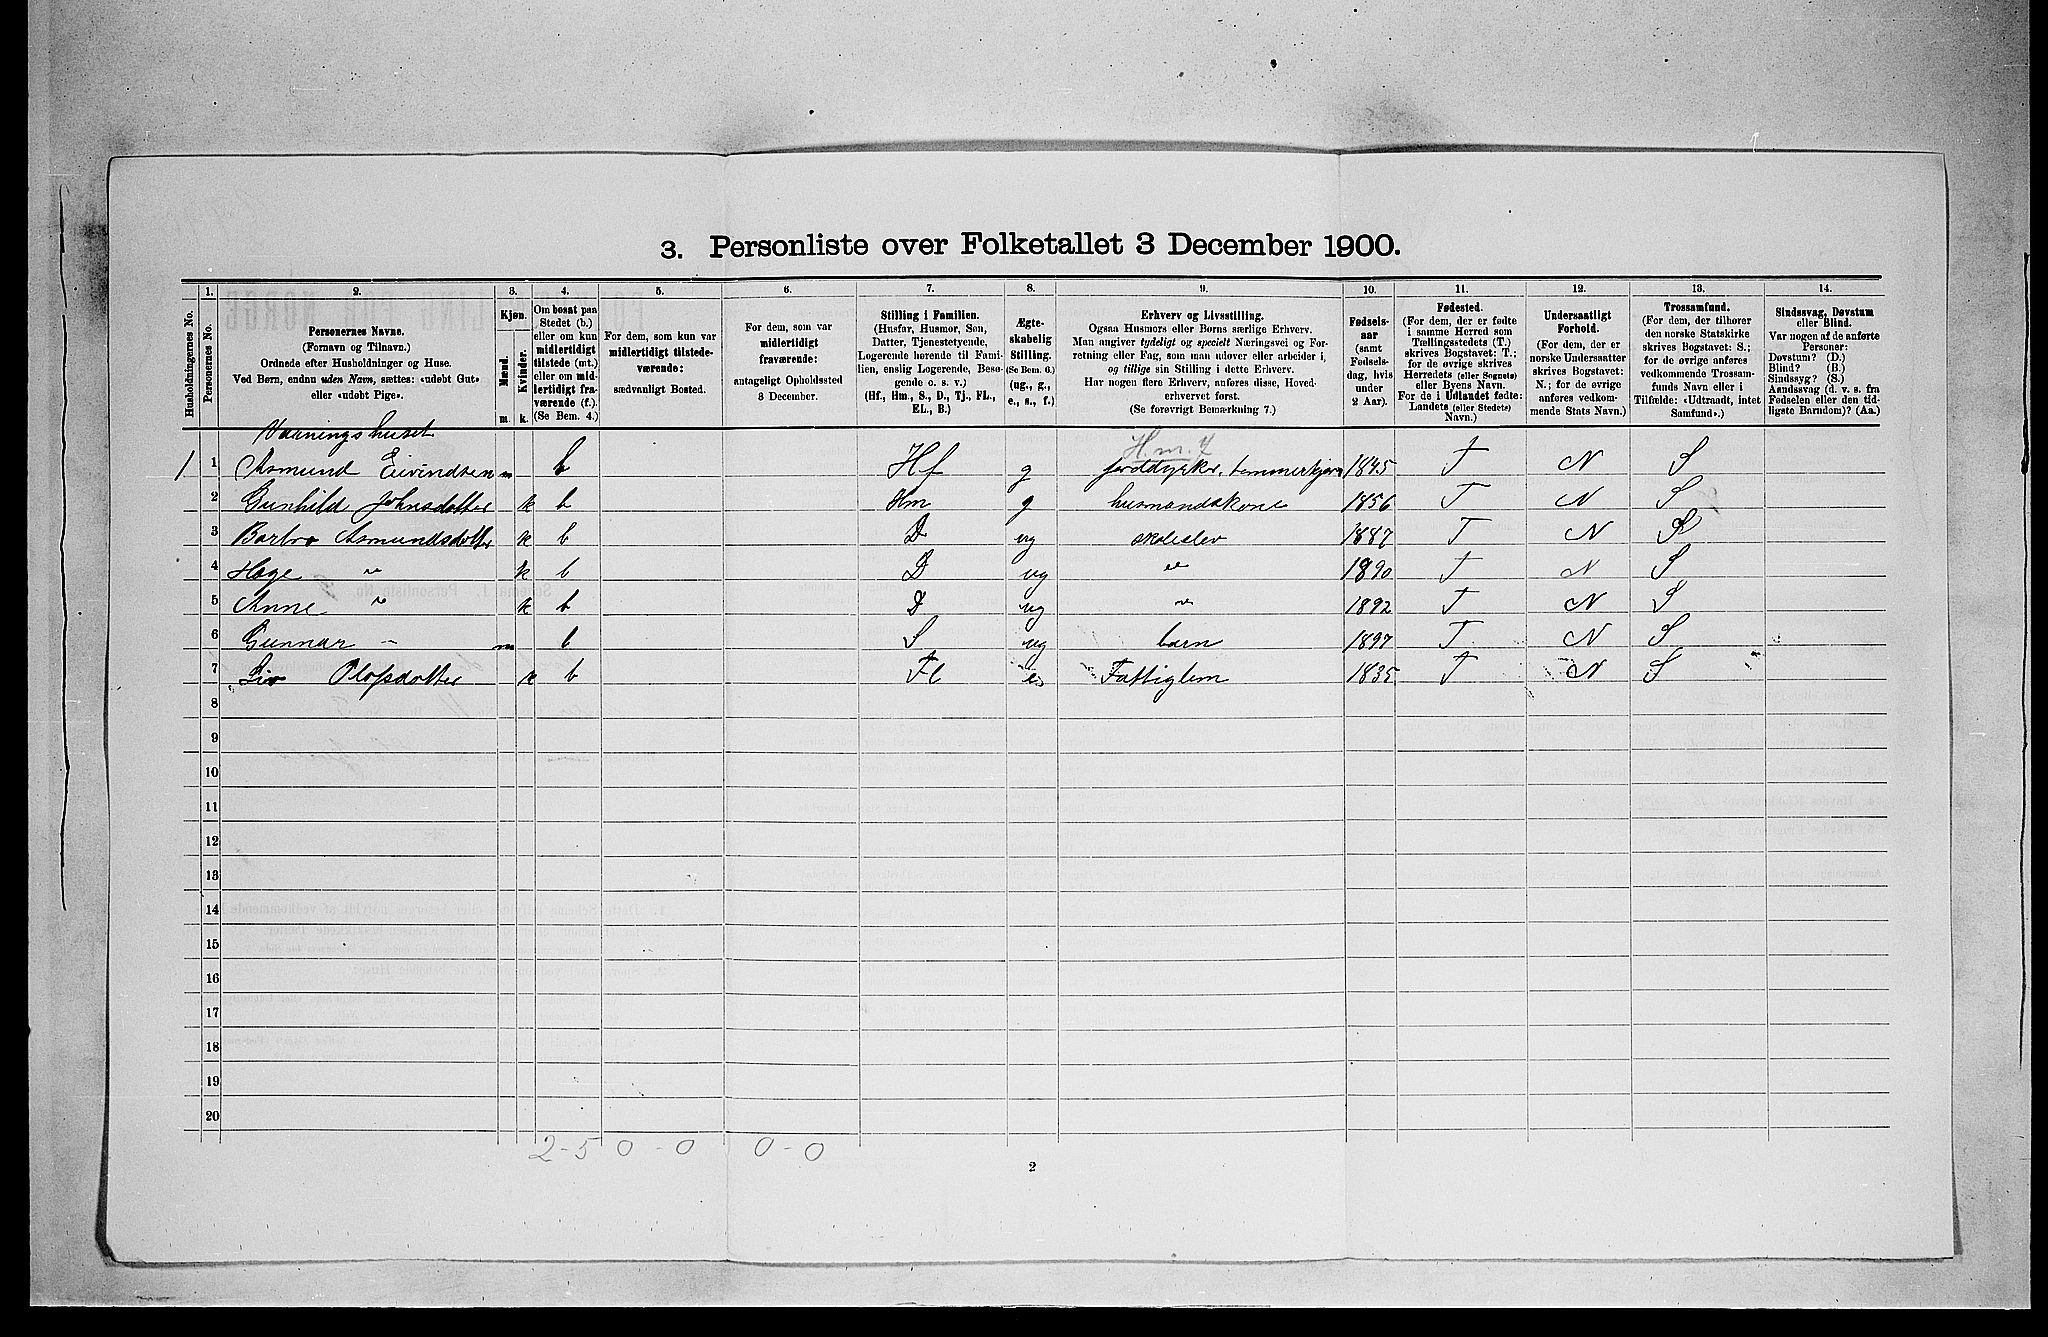 3. Personliste over Folketallet 3 December 1900.
1. 2. 3. 4. 5. 6. 7. 8. 9. 10. 11. 12. 13. 14.
Husholdningernes No.
Personernes No.
Personernes Navne.
(Fornavn og Tilnavn.)
Ordnede efter Husholdninger og Huse.
Ved Børn, endnu uden Navn, sættes: «udøbt Gut»
eller «udøbt Pige».
Kjøn.
Mænd.
Kvinder.
m. k.
Om bosat paa
Stedet (b.)
eller om kun
midlertidigt
tilstede (mt.)
eller om mid-
lertidigt fra-
værende (f.).
(Se Bem. 4.)
For dem, som kun var
midlertidigt tilstede-
værende:
sædvanligt Bosted.
For dem, som var
midlertidigt
fraværende:
antageligt Opholdssted
3 December.
Stilling i Familien.
(Husfar, Husmor, Søn,
Datter, Tjenestetyende,
Logerende hørende til Fami-
lien, enslig Logerende, Besø-
gende o. s. v.)
(Hf., Hm., S., D., Tj., FL.,
EL., B.)
Ægte-
skabelig
Stilling.
(Se Bem. 6.)
(ug., g.,
e., s., f.)
Erhverv og Livsstilling.
Ogsaa Husmors eller Børns særlige Erhverv.
Man angiver tydeligt og specielt Næringsvei og For-
retning eller Fag, som man udøver eller arbeider i,
og tillige sin Stilling i dette Erhverv.
Har nogen flere Erhverv, anføres disse, Hoved-
erhvervet først.
(Se forøvrigt Bemærkning 7.)
Fødsels-
aar
(samt
Fødsels-
dag, hvis
under
2 Aar).
Fødested.
(For dem, der er fødte
i samme Herred som
Tællingsstedets (T.)
skrives Bogstavet: T.;
for de øvrige skrives
Herredets (eller Sognets)
eller Byens Navn.
For de i Udlandet fødte:
Landets (eller Stedets)
Navn.)
Undersaatligt
Forhold.
(For dem, der er
norske Undersaatter
skrives Bogstavet:
N.; for de øvrige
anføres vedkom-
mende Stats Navn.)
Trossamfund.
(For dem, der tilhører
den norske Statskirke
skrives Bogstavet: S.;
for de øvrige anføres
vedkommende Trossam-
funds Navn eller i
Tilfælde: «Udtraadt, intet
Samfund».)
Sindssvag, Døvstum
eller Blind.
Var nogen af de anførte
Personer:
Døvstum? (D.)
Blind? (B.)
Sindssyg? (S.)
Aandssvag (d. v. s. fra
Fødselen eller den tid-
ligste Barndom)? (Aa.)
Vaaningshuset
1 1 Asmund Eivindsen m b Hf g jorddyrker, tømmerkjører 1845 T N S
2 Gunhild Johnsdatter k b Hm g husmandskone 1856 T N S
3 Barbro Asmundsdotter k b D ug skoleelev 1887 T N S
4 Hæge " k b D ug " 1890 T N S
5 Anne " k b D ug " 1892 T N S
6 Gunnar " m b S ug barn 1897 T N S
7 Liv Olofsdotter k b Fl e Fattiglem 1835 T N S
8
9
10
11
12
13
14
15
16
17
18
19
20
2 - 5 0 - 0 0 - 0
2